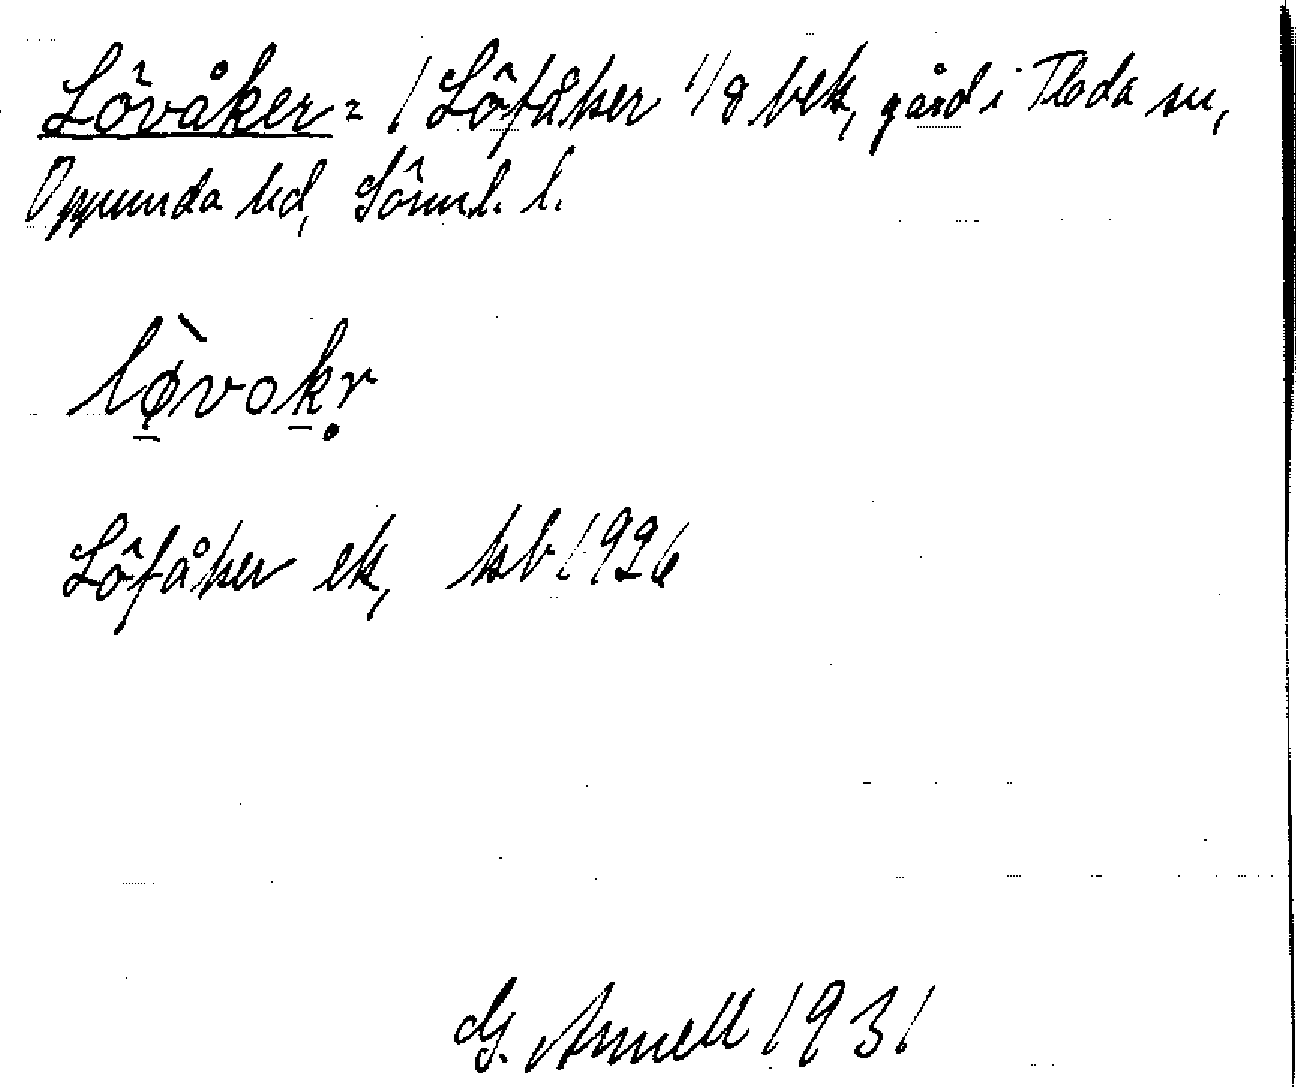 Lövåker = / Löfåker 1/8 bek, gård i Floda sn,
Oppunda hd, Sörml. l.
lø̀vokr̥
Löfåker ek, kb 1926
G. Annell 1931